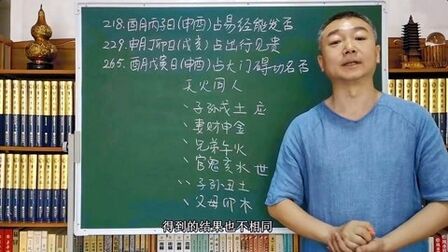 218.酉月丙子日(申酉)占易经能发否
229.申月丁卯日(戌亥)占出行见贵
265.酉月戊寅日(申酉)占大门碍功名否
天火同人
、子孙戌土 应
、妻财申金
、兄弟午火
、官鬼亥水 世
、、子孙丑土
、父母卯木
得到的结果也不相同